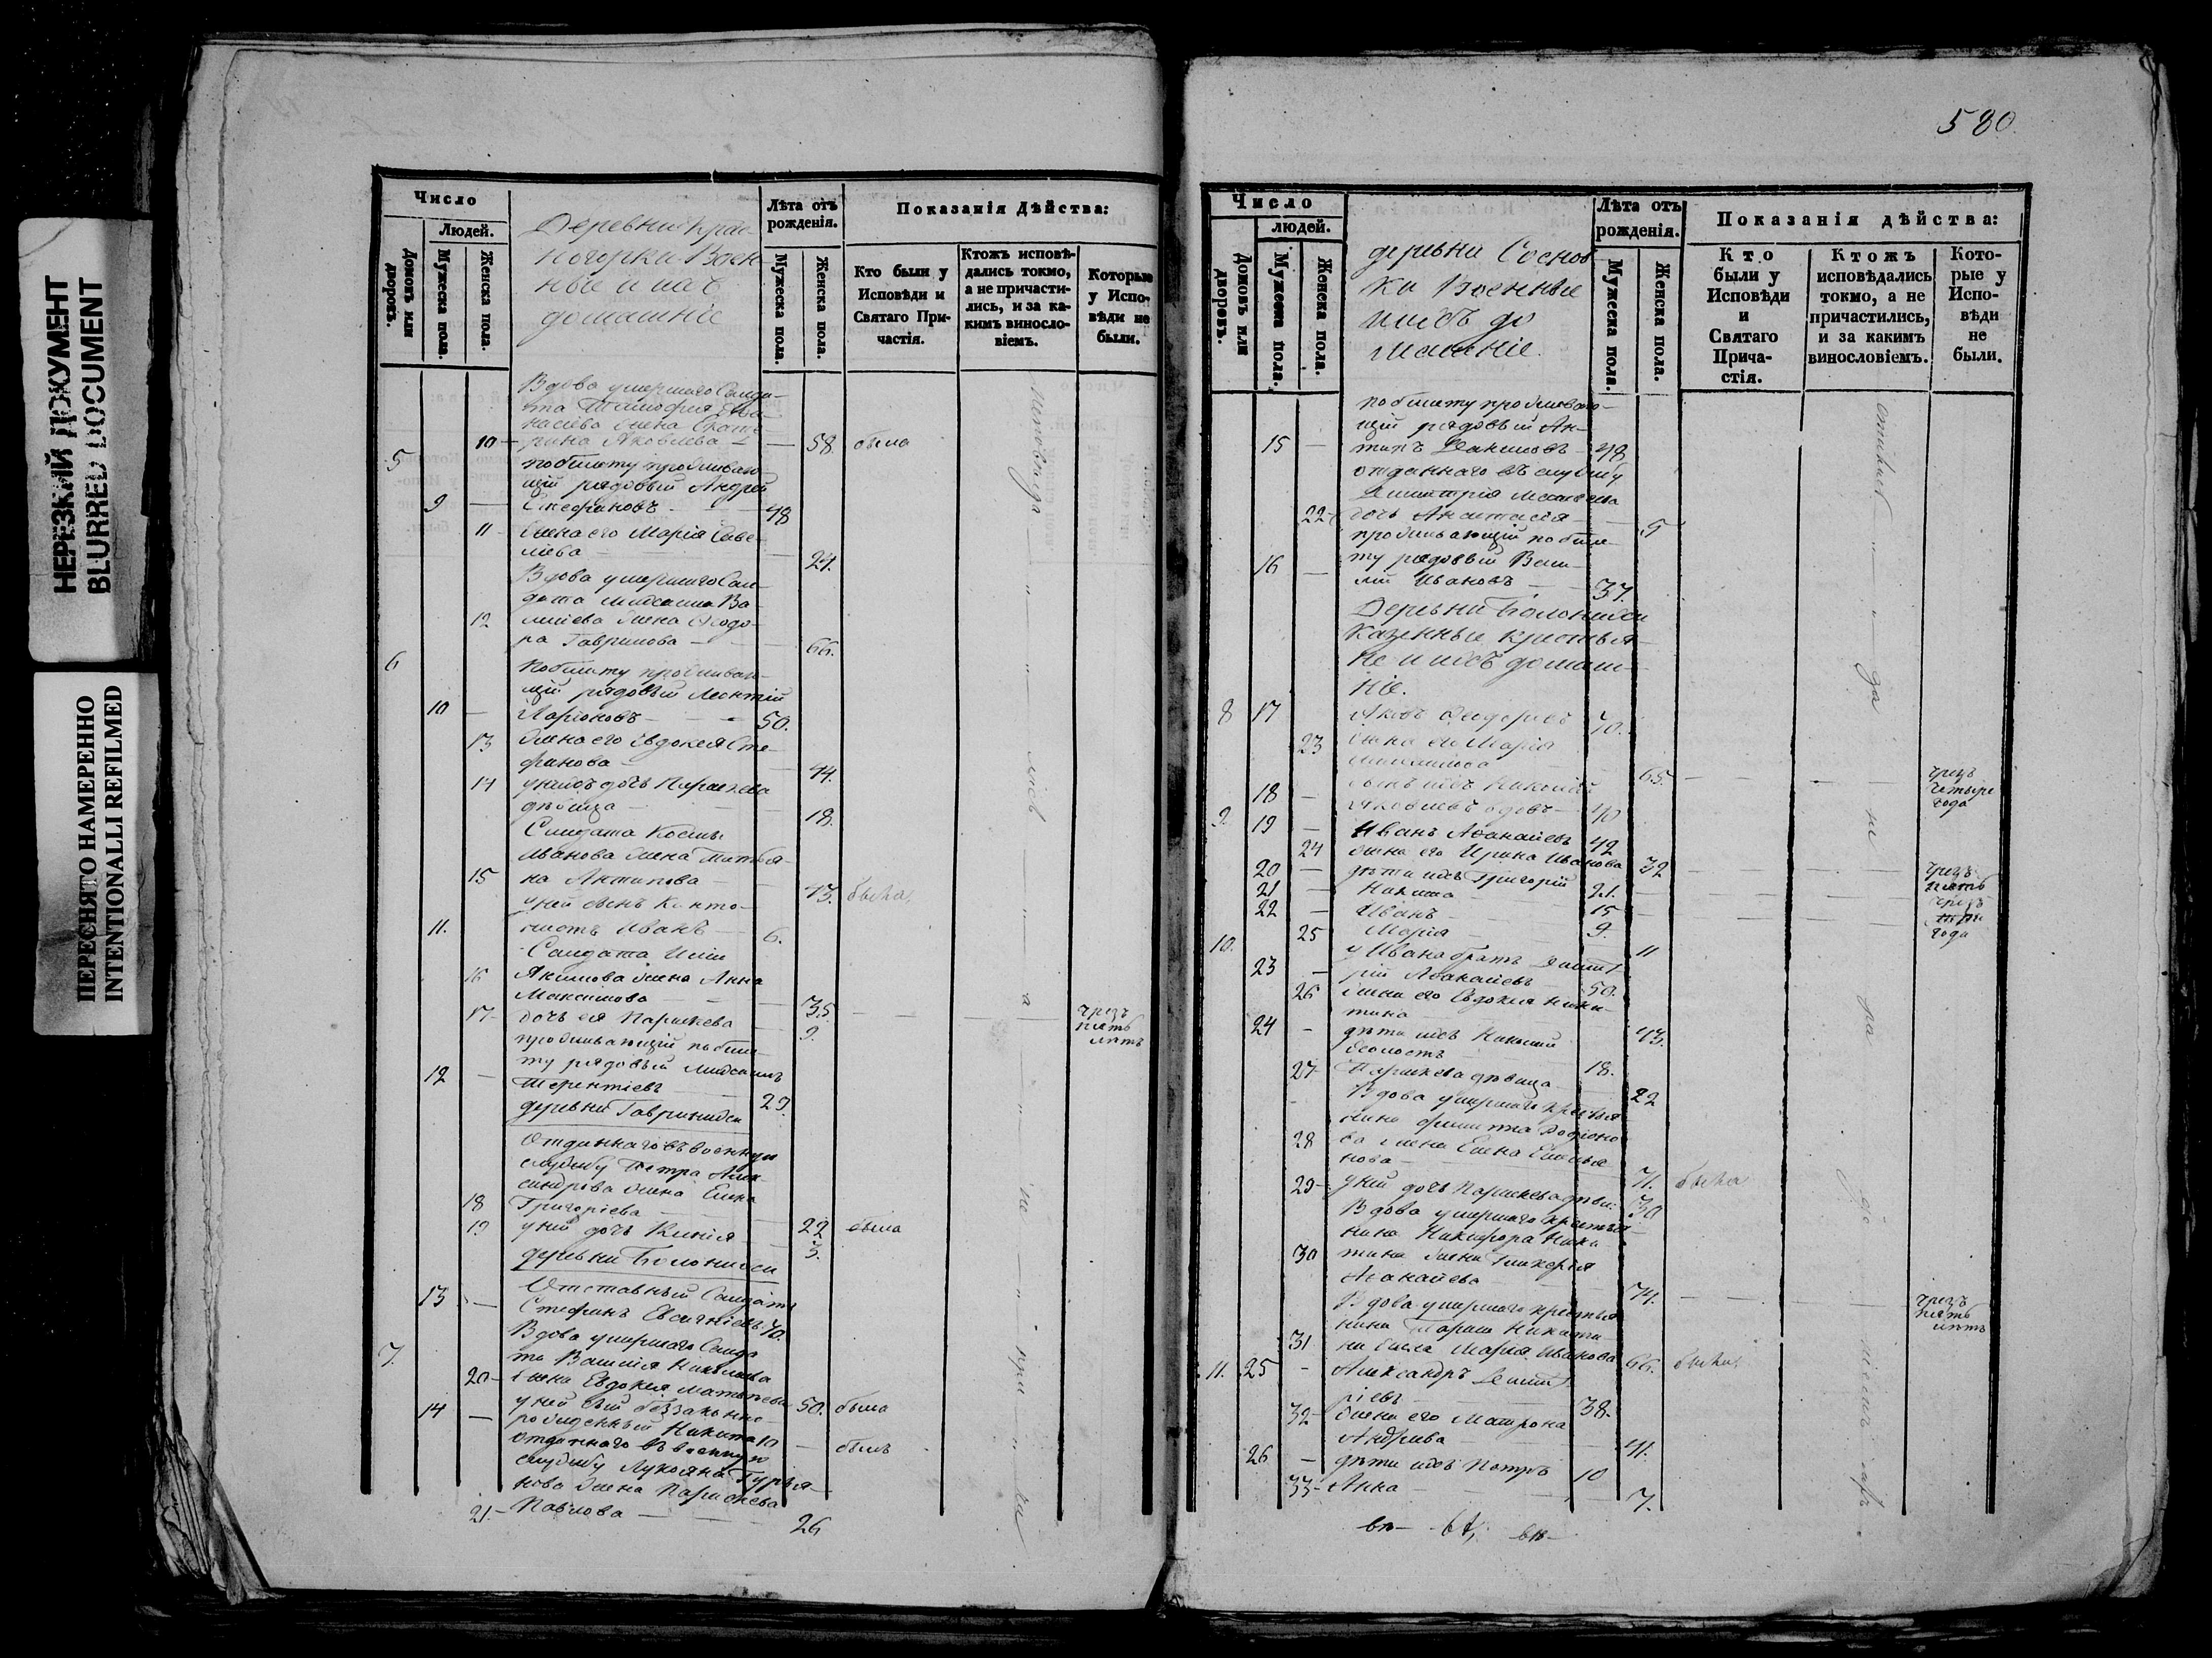 НЕРЕЗКИЙ ДОКУМЕНТ
BLURRED DOCUMENT
ПЕРЕСНЯТО НАМЕРЕННО
INTENTIONALLI REFILMED
Число
Людей.
Домовъ или дворовъ.
Мужеска пола.
Женска пола.
Деревни Крас
ногорки Воен
ные и ихъ
домашніе
Лѣта отъ рожденія.
Мужеска пола.
Женска пола.
Показанія Дѣйства:
Кто были у Исповѣди и Святаго Причастія.
Ктожъ исповѣдались токмо, а не причастились, и за какимъ винословіемъ.
Которые у Исповѣди не были.
Вдова умершаго Солда-
та Тимофея Афа-
насіева жена Екате-
10 рина Яковлева 58 была
5 побилету проживаю
щій рядовый Андрей
9 Стефановъ 48
11 жена его Марія Саве-
ліева 24.
Вдова умершаго Сол-
дата Михаила Ва-
12 силіева жена Ѳеодо-
ра Гаврилова 66.
6 побилету проживаю-
щій рядовый Леонтій
10 Ларіоновъ 50.
13 жена его Евдокея Сте-
фанова 44.
14 у нихъ дочь Параскева
дѣвица 18.
Солдата Космы
Иванова жена Татья-
15 на Антипова 43. была
у ней сынъ Канто-
11. нистъ Иванъ 6.
Солдата Иліи
16 Якимова жена Анна
Максимова 35
17 дочь ея Параскева 9. чрезъ пять лѣтъ
проживающій побиле-
ту рядовый Михаилъ
12 Терентіевъ 29.
деревни Гавринихи
Отданнаго въ военную
службу Петра Алек-
сандрова жена Елена
18 Григоріева 22 была
19 у ней дочь Ксенія 3.
деревни Болонихи
Отставный Солдатъ
13 Стефанъ Евсигніевъ 40
7. Вдова умершаго Солда
та Василія Николаева
20 жена Евдокея Матвѣева 50. была
у ней сынъ беззаконно-
14 рожденный Никита 10 былъ
Отданнаго въ военную
службу Лукояна Гурья-
нова жена Параскева
21. Павлова 26
580.
Число
людей.
Домовъ или дворовъ.
Мужеска пола.
Женска пола.
деревни Соснов
ки Военные
и ихъ до
машніе.
Лѣта отъ рожденія.
Мужеска пола.
Женска пола.
Показанія дѣйства:
Кто были у Исповѣди и Святаго Причастія.
Ктожъ исповѣдались токмо, а не причастились, и за какимъ винословіемъ.
Которые у Исповѣди не были.
побилету проживаю-
щій рядовый Ан-
15 типъ Даниловъ 48
отданнаго въ службу
Димитрія Матвѣева
22 дочь Анастасія 5
проживающій побиле-
16 ту рядовый Васи-
лій Ивановъ 37.
Деревни Болонихи
Казенные крестья-
не и ихъ домаш-
ніе.
8 17 Яковъ Ѳедоровъ 70.
23 жена его Марія
65. чрезъ четыре года
18 сынъ ихъ Николай
Яковлевъ вдовъ 40
9. 19 Иванъ Аѳанасіевъ 42
24 жена его Ирина Иванова 32 чрезъ пять
20 дѣти ихъ Григорій 21.
21 Никита 15 чрезъ три года
22 Иванъ 9.
25 Марія 11
10. у Ивана братъ Димит
23 рій Аѳанасіевъ 50.
26 жена его Евдокея Ники-
тина 43.
24 дѣти ихъ Николай
холостъ 18.
27 Параскева дѣвица 22
Вдова умершаго крестья
нина Филиппа Родіоно
28 ва жена Елена Емелья
нова 71. была
29 у ней дочь Параскева дѣви: 30
Вдова умершаго крестья-
нина Никифора Ники
30 тина жена Гликерія
Аѳанасіева 74. чрезъ пять лѣтъ
Вдова умершаго крестья
нина Тараса Никити
31 на жена Марія Иванова 66. была
11. 25 Александръ Димит
ріевъ 38.
32 жена его Матрона
Андреева 41.
26 дѣти ихъ Петръ 10
33 Анна 7.